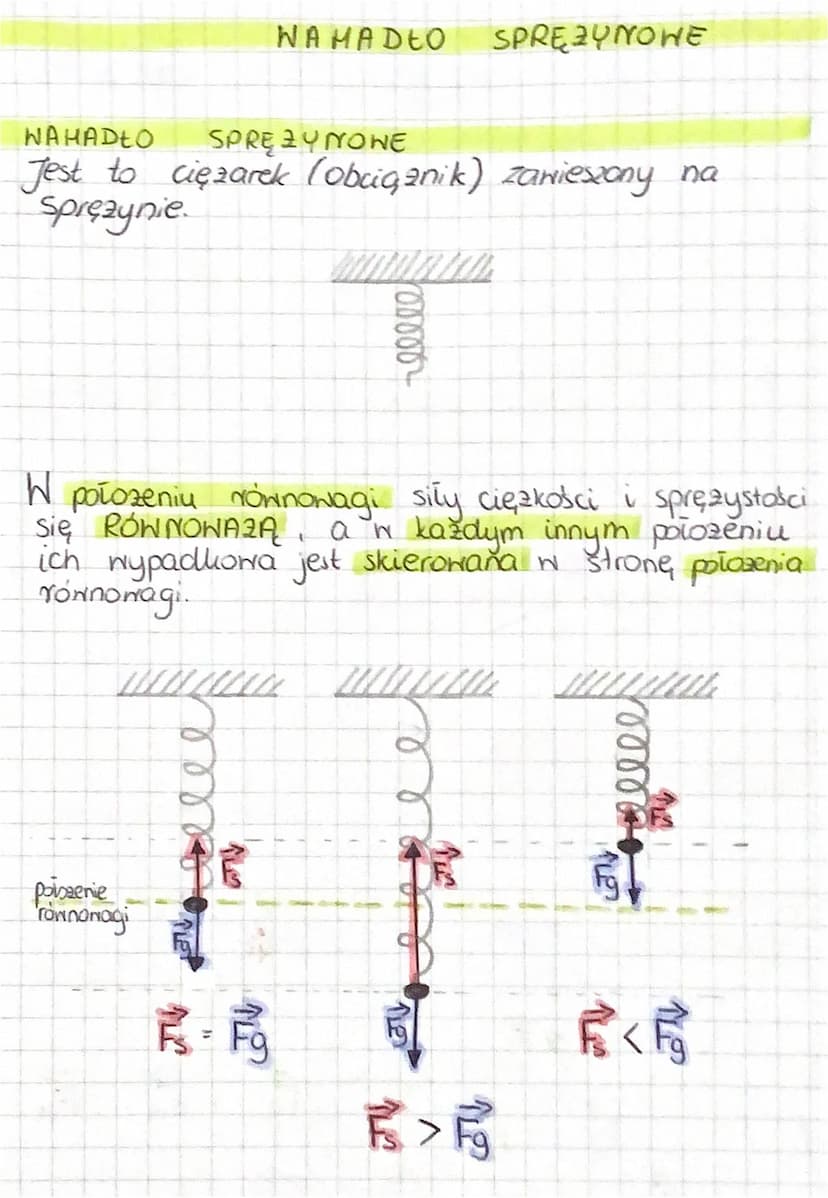 WAHADŁO SPRĘŻYNOWE
WAHADŁO SPRĘŻYNOWE
Jest to ciężarek (obciążnik) zawieszony na
sprężynie.
W położeniu równowagi siły ciężkości i sprężystości
się RÓWNOWAŻĄ, a w każdym innym położeniu
ich wypadkowa jest skierowana w stronę położenia
równowagi.
Fs
Fs
Fs
Fg
położenie
równowagi
Fg
Fg
Fs = Fg
Fs < Fg
Fs > Fg